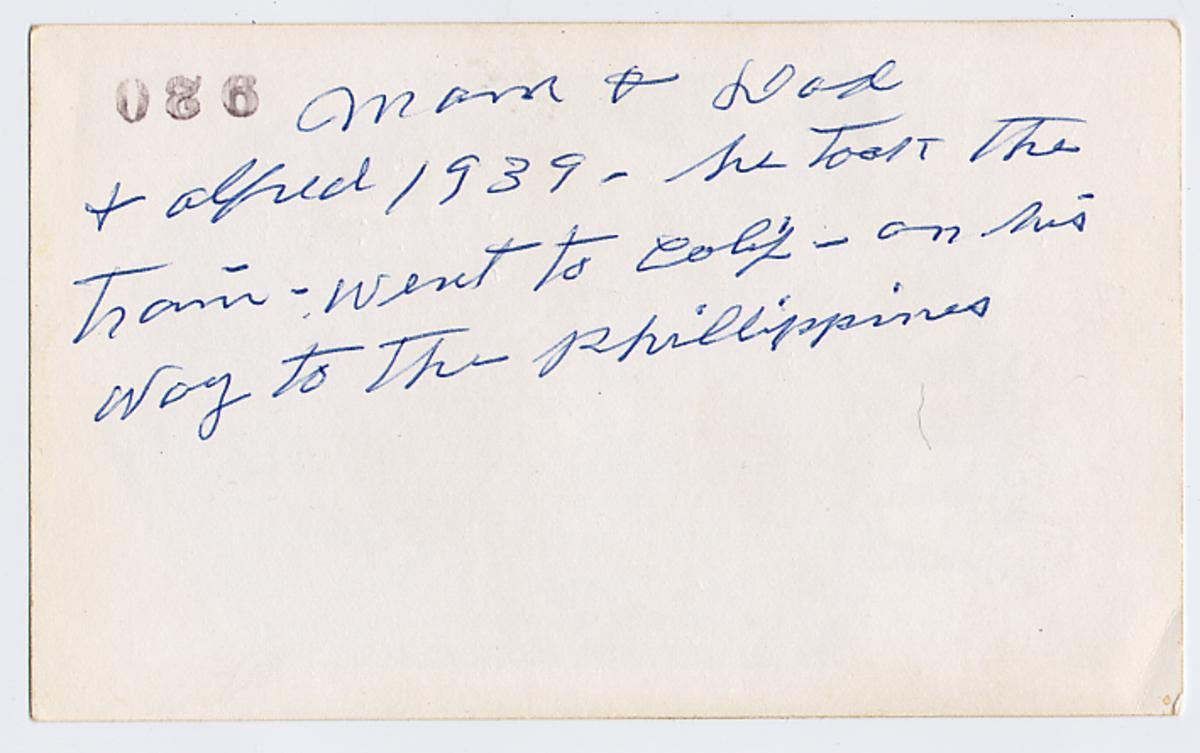 086 Mom + Dad
+ alfred 1939 - he took the
Train - went to Calif - on his
way to the Phillippines